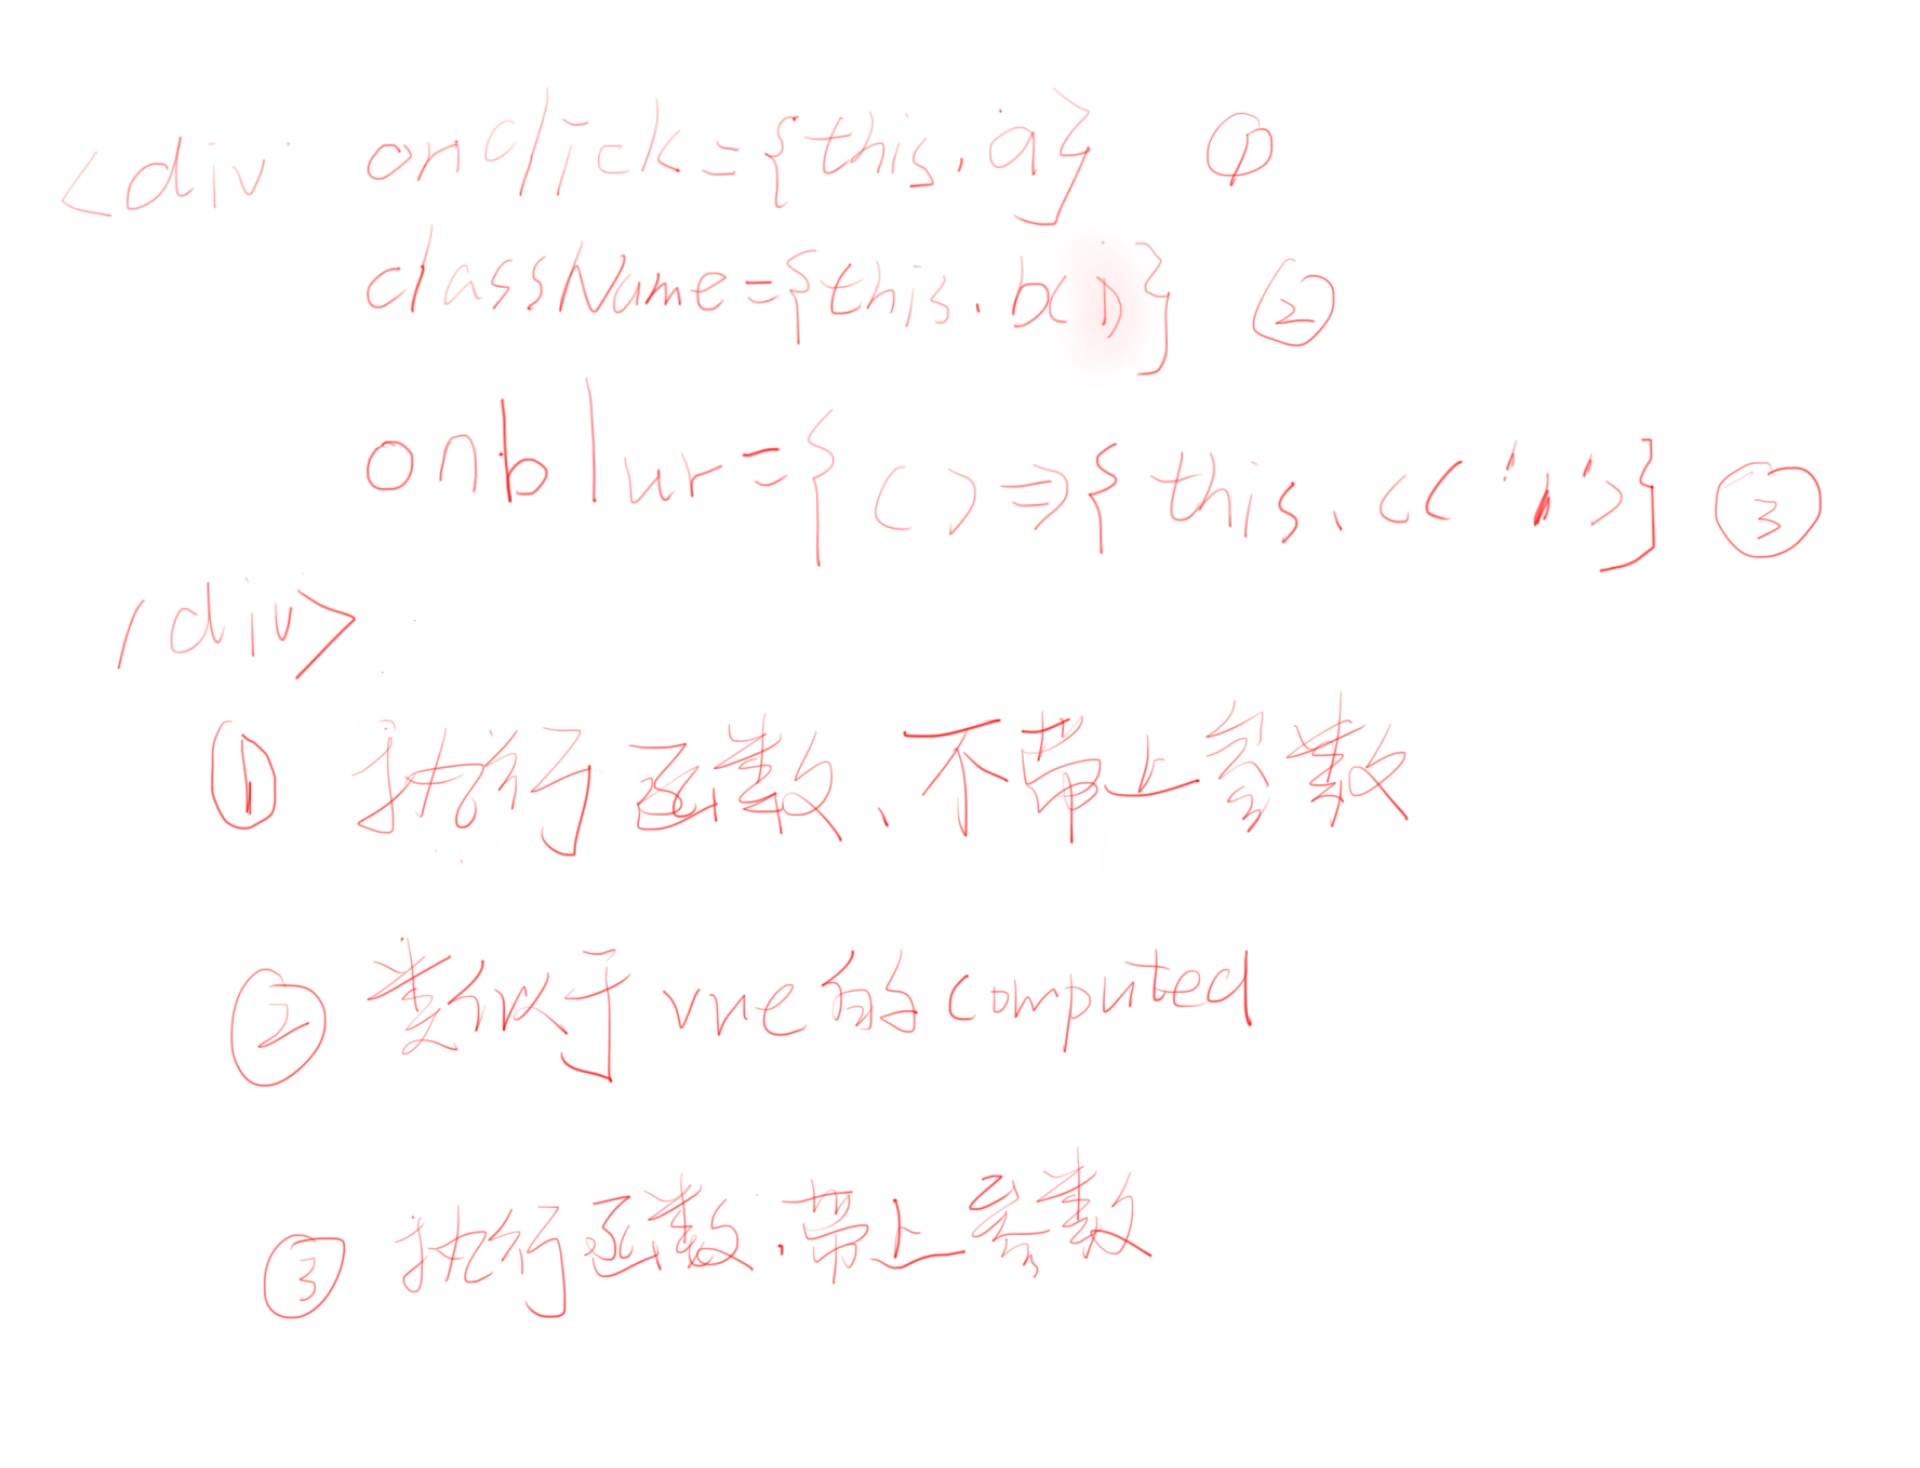 <div onclick={this.a} ①
className={this.b()} ②
onblur={()=>{this.c('1')} ③
/div>
① 执行函数、不带上参数
② 类似于vue的computed
③ 执行函数.带上参数